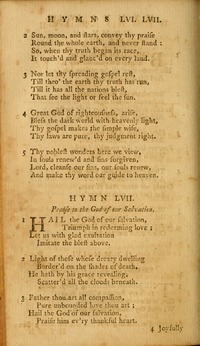 HYMNS LVI. LVII.
2 Sun, moon, and ſtars, convey thy praiſe
Round the whole earth, and never ſtand:
So, when thy truth began its race,
It touch'd and glanc'd on every land.
3 Nor let thy ſpreading goſpel reſt,
Till thro' the earth thy truth has run,
Till it has all the nations bleſt,
That ſee the light or feel the ſun.
4 Great God of righteouſneſs, ariſe,
Bleſs the dark world with heavenly light,
Thy goſpel makes the ſimple wiſe,
Thy laws are pure, thy judgment right.
5 Thy nobleſt wonders here we view,
In ſouls renew'd and ſins forgiven,
Lord, cleanſe our ſins, our ſouls renew,
And make thy word our guide to heaven.
HYMN LVII.
Praiſe to the God of our Salvation.
1 HAIL the God of our ſalvation,
Triumph in redeeming love;
Let us with glad exultation
Imitate the bleſt above.
2 Light of thoſe whoſe dreary dwelling
Border'd on the ſhades of death,
He hath by his grace revealing,
Scatter'd all the clouds beneath.
3 Father thou art all compaſſion,
Pure unbounded love thou art;
Hail the God of our ſalvation,
Praiſe him ev'ry thankful heart.
4 Joyfully